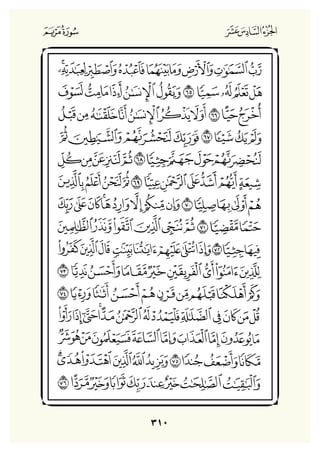 الجُزْءُ السَّادِسَ عَشَرَ
سُورَةُ مَرْيَمَ
رَّبُّ ٱلسَّمَٰوَٰتِ وَٱلْأَرْضِ وَمَا بَيْنَهُمَا فَٱعْبُدْهُ وَٱصْطَبِرْ لِعِبَٰدَتِهِۦۚ
هَلْ تَعْلَمُ لَهُۥ سَمِيًّا ٦٥ وَيَقُولُ ٱلْإِنسَٰنُ أَءِذَا مَا مِتُّ لَسَوْفَ
أُخْرَجُ حَيًّا ٦٦ أَوَلَا يَذْكُرُ ٱلْإِنسَٰنُ أَنَّا خَلَقْنَٰهُ مِن قَبْلُ
وَلَمْ يَكُ شَيْـًٔا ٦٧ فَوَرَبِّكَ لَنَحْشُرَنَّهُمْ وَٱلشَّيَٰطِينَ ثُمَّ
لَنُحْضِرَنَّهُمْ حَوْلَ جَهَنَّمَ جِثِيًّا ٦٨ ثُمَّ لَنَنزِعَنَّ مِن كُلِّ
شِيعَةٍ أَيُّهُمْ أَشَدُّ عَلَى ٱلرَّحْمَٰنِ عِتِيًّا ٦٩ ثُمَّ لَنَحْنُ أَعْلَمُ بِٱلَّذِينَ
هُمْ أَوْلَىٰ بِهَا صِلِيًّا ٧٠ وَإِن مِّنكُمْ إِلَّا وَارِدُهَا كَانَ عَلَىٰ رَبِّكَ
حَتْمًا مَّقْضِيًّا ٧١ ثُمَّ نُنَجِّى ٱلَّذِينَ ٱتَّقَوا۟ وَّنَذَرُ ٱلظَّٰلِمِينَ
فِيهَا جِثِيًّا ٧٢ وَإِذَا تُتْلَىٰ عَلَيْهِمْ ءَايَٰتُنَا بَيِّنَٰتٍ قَالَ ٱلَّذِينَ كَفَرُوا۟
لِلَّذِينَ ءَامَنُوٓا۟ أَىُّ ٱلْفَرِيقَيْنِ خَيْرٌ مَّقَامًا وَأَحْسَنُ نَدِيًّا ٧٣
وَكَمْ أَهْلَكْنَا قَبْلَهُم مِّن قَرْنٍ هُمْ أَحْسَنُ أَثَٰثًا وَرِءْيًا ٧٤
قُلْ مَن كَانَ فِى ٱلضَّلَٰلَةِ فَلْيَمْدُدْ لَهُ ٱلرَّحْمَٰنُ مَدًّا حَتَّىٰٓ إِذَا رَأَوْا۟
مَا يُوعَدُونَ إِمَّا ٱلْعَذَابَ وَإِمَّا ٱلسَّاعَةَ فَسَيَعْلَمُونَ مَنْ هُوَ شَرٌّ
مَّكَانًا وَأَضْعَفُ جُندًا ٧٥ وَيَزِيدُ ٱللَّهُ ٱلَّذِينَ ٱهْتَدَوْا۟ هُدًى
وَٱلْبَٰقِيَٰتُ ٱلصَّٰلِحَٰتُ خَيْرٌ عِندَ رَبِّكَ ثَوَابًا وَخَيْرٌ مَّرَدًّا ٧٦
٣١٠